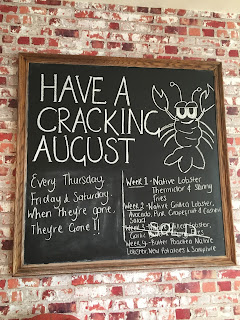 HAVE A
CRACKING
AUGUST
Every Thursday,
Friday & Saturday.
When They're gone,
They're Gone!!
Week 1 - Native Lobster
Thermidor & Skinny
Fries
Week 2 - Native Grilled Lobster,
Avocado, Pink Grapefruit & Cashew
Salad
Week 3 - Lobster,
Garlic
Week 4 - Butter Poached Native
Lobster, New Potatoes & Samphire